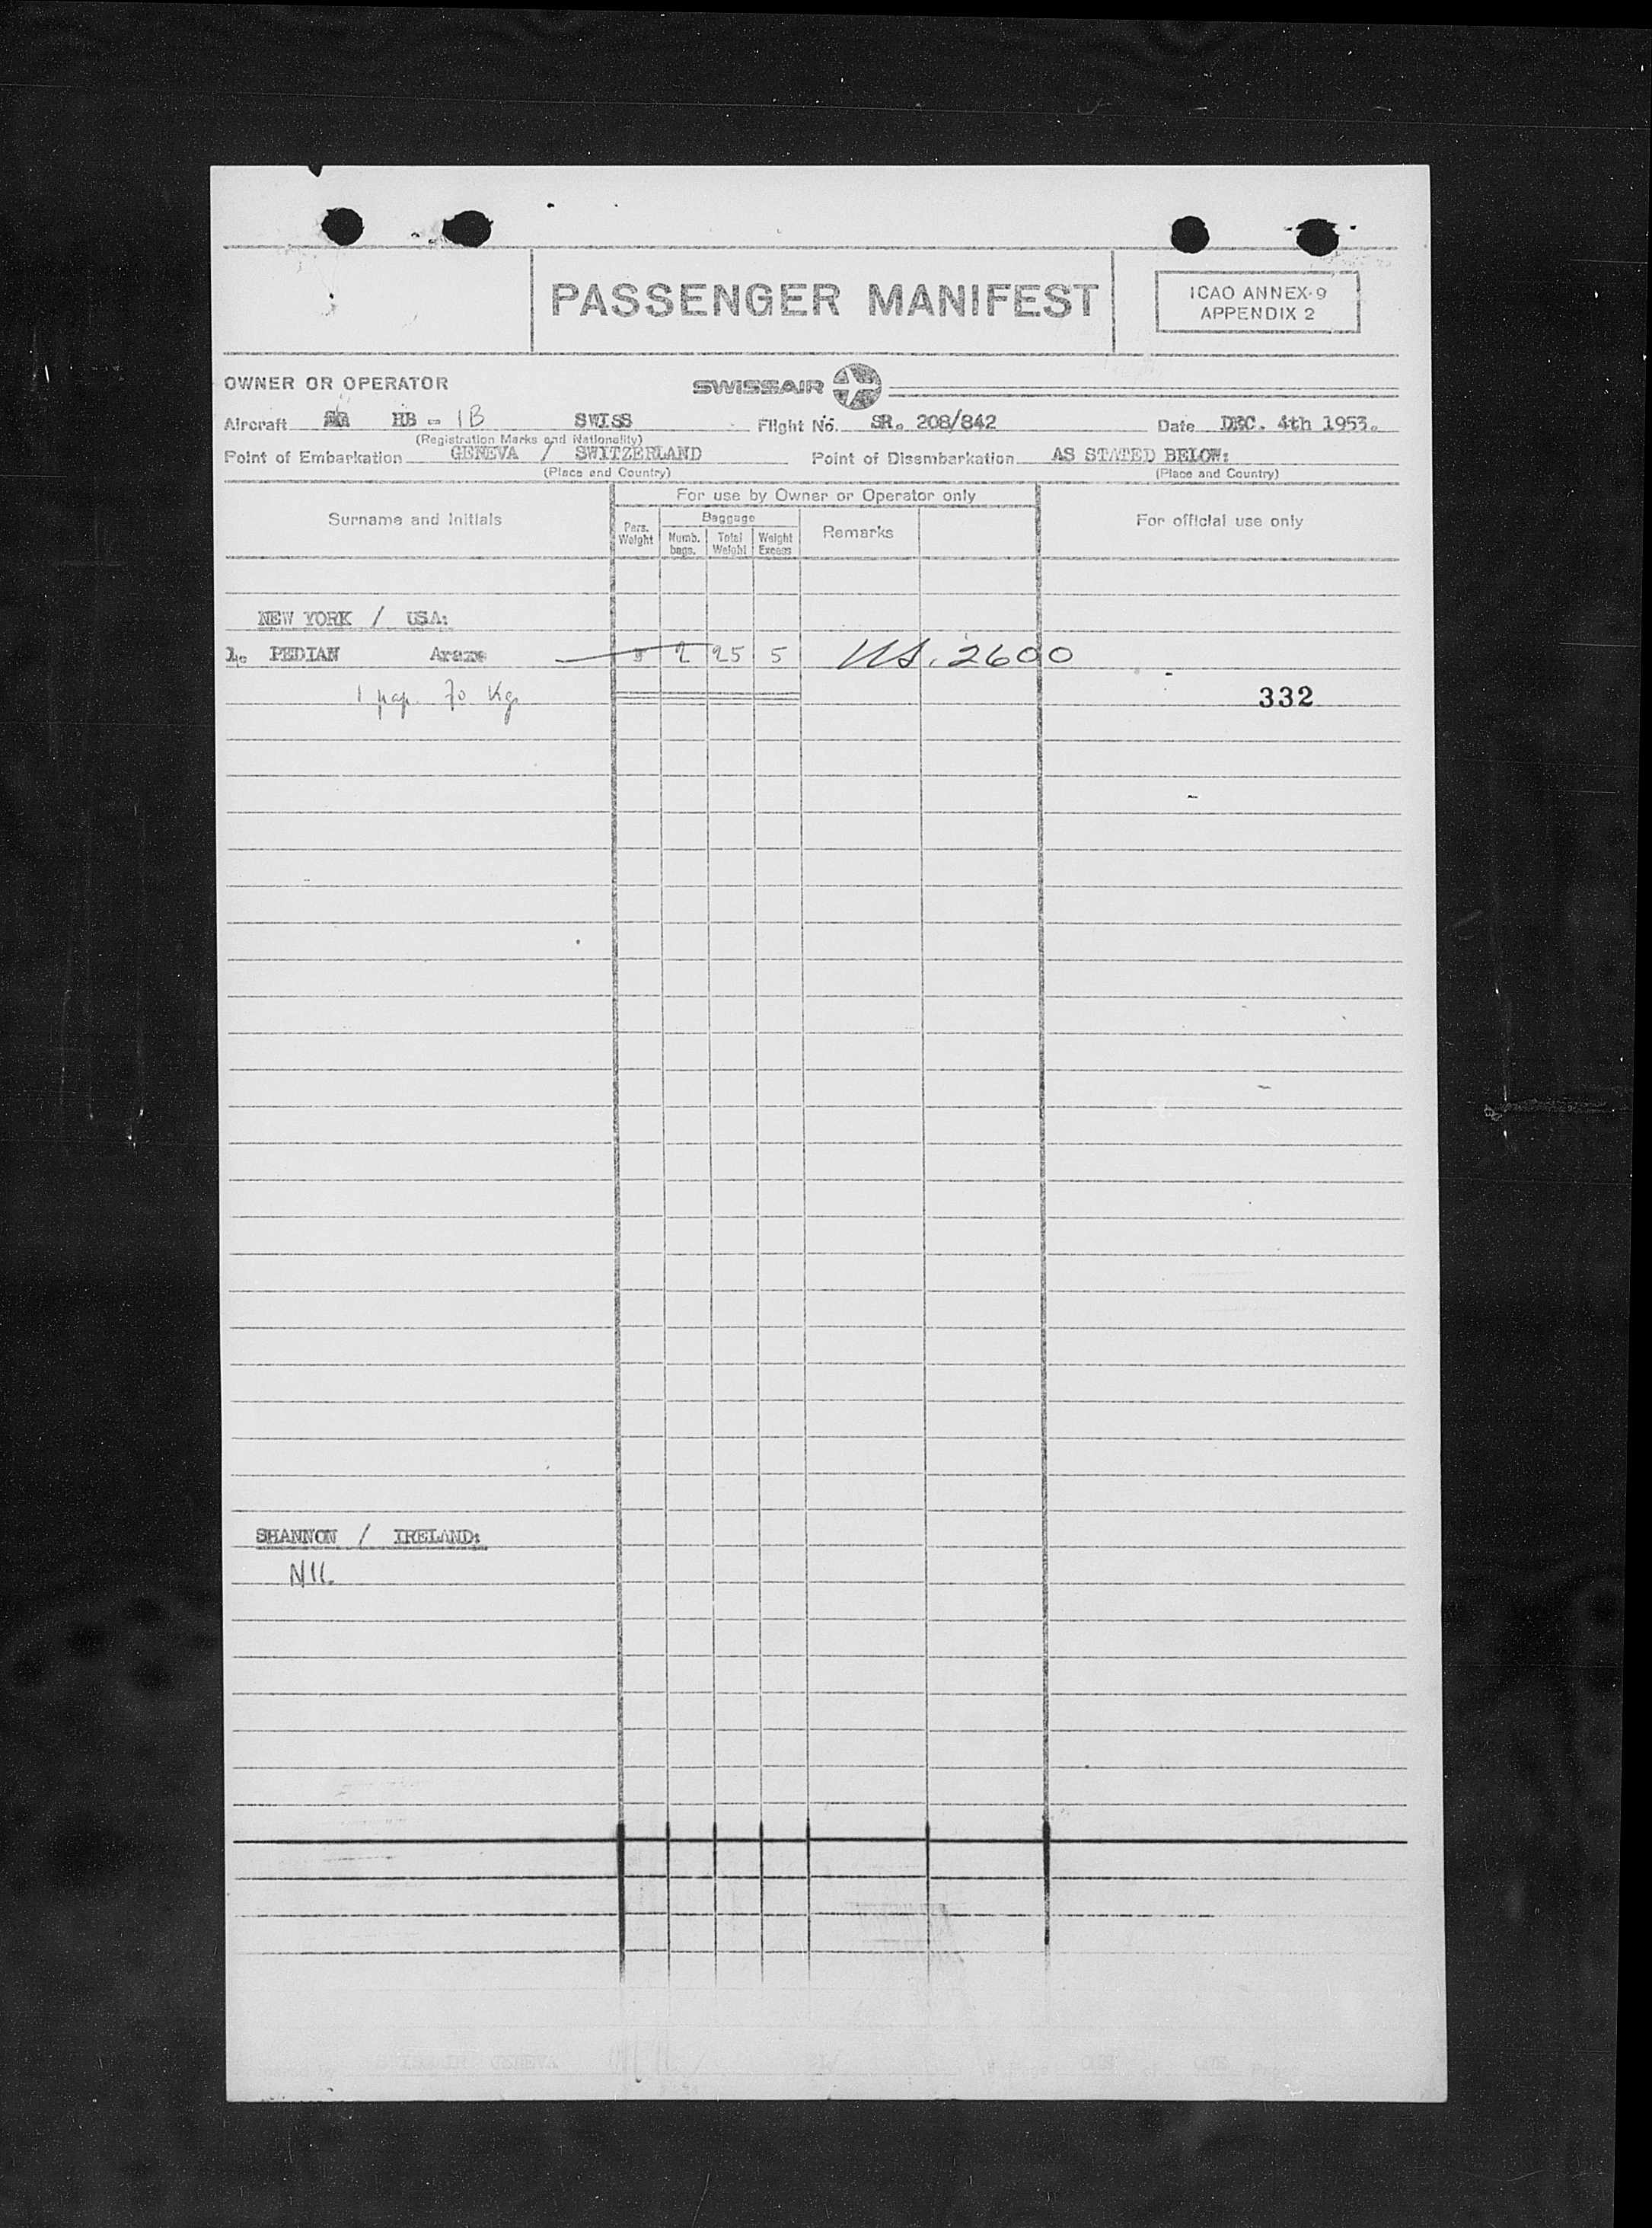 PASSENGER MANIFEST
ICAO ANNEX-9
APPENDIX 2
OWNER OR OPERATOR SWISSAIR
Aircraft HB - IB SWISS Flight No. SR. 208/842 Date DEC. 4th 1953.
(Registration Marks and Nationality)
Point of Embarkation GENEVA / SWITZERLAND Point of Disembarkation AS STATED BELOW:
(Place and Country) (Place and Country)
For use by Owner or Operator only
Surname and Initials Pers. Weight Baggage Numb. bags. Total Weight Weight Excess Remarks For official use only
NEW YORK / USA:
1. PEDIAN 2 25 5 US. 2600
1 pap. 70 Kg. 332
SHANNON / IRELAND:
NIL
SWISSAIR GENEVA